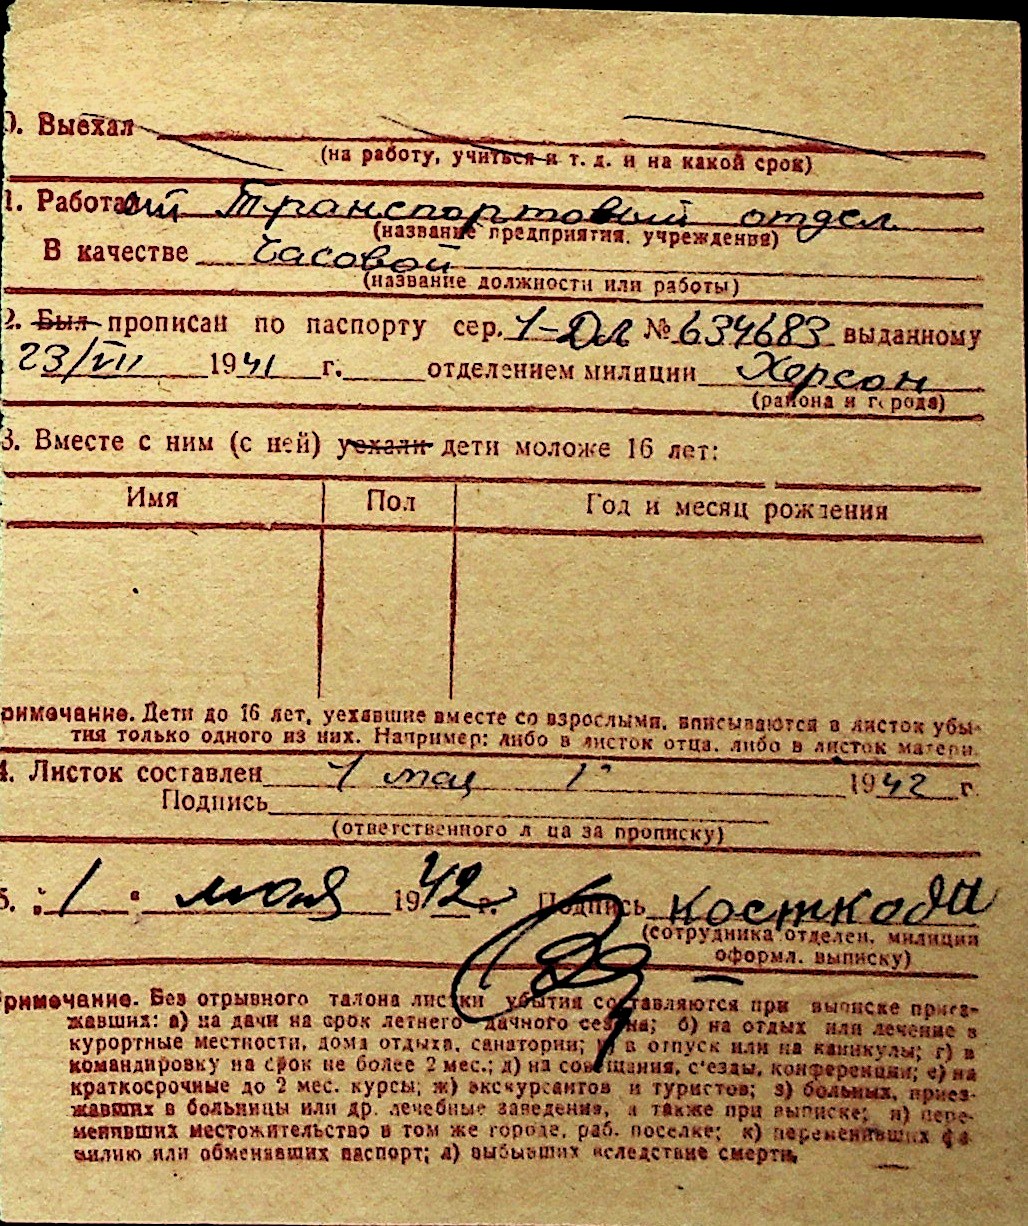 0. Выехал
(на работу, учиться и т. д. и на какой срок)
1. Работающий Транспортовый отдел
(название предприятия, учреждения)
В качестве Часовой
(название должности или работы)
2. Был прописан по паспорту сер. 1-Дл № 634683 выданному
23/VII 1941 г. отделением милиции Херсон
(района и города)
3. Вместе с ним (с ней) уехали дети моложе 16 лет:
Имя Пол Год и месяц рождения
римечание. Дети до 16 лет, уехавшие вместе со взрослыми, вписываются в листок убы-
тия только одного из них. Например: либо в листок отца, либо в листок матери.
4. Листок составлен 1 мая 1942 г.
Подпись
(ответственного л ца за прописку)
5. „1“ мая 1942 г. Подпись
(сотрудника отделен. милиции
оформл. выписку)
римечание. Без отрывного талона листки убытия составляются при выписке приез-
жавших: а) на дачи на срок летнего дачного сезона; б) на отдых или лечение в
курортные местности, дома отдыха, санатории; в) в отпуск или на каникулы; г) в
командировку на срок не более 2 мес.; д) на совещания, с'езды, конференции; е) на
краткосрочные до 2 мес. курсы; ж) экскурсантов и туристов; з) больных, приез-
жавших в больницы или др. лечебные заведения, а также при выписке; и) пере-
менивших местожительство в том же городе, раб. поселке; к) переменивших фа
милию или обменявших паспорт; л) выбывших вследствие смерти.